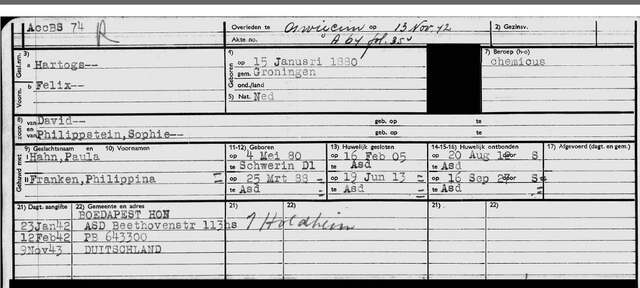 AccBS 74 R Overleden te Oswiecim op 13 Nov. 42 2) Gezinsv.
Akte no. A 64 fol. 35v
3) 4) 7) Beroep (h-o)
Gesl.nm. a Hartogs-- Geboren op 15 Januari 1880 chemicus
gem. Groningen
Voorn. b Felix-- ond./land
5) Nat. Ned
8) van David-- geb. op te
en van Philippstein, Sophie-- geb. op te
9) Geslachtsnaam en 10) Voornamen 11-12) Geboren 13) Huwelijk gesloten 14-15-16) Huwelijk ontbonden 17) Afgevoerd (dagt. en gem.)
Gehuwd met Hahn, Paula op 4 Mei 80 op 16 Feb 05 op 20 Aug door S
te Schwerin Dl te Asd te Asd
Franken, Philippina op 25 Mrt 88 op 19 Jun 13 op 16 Sep door S
te Asd te Asd te Asd
21) Dagt. aangifte 22) Gemeente en adres 21) 22) 21) 22)
BOEDAPEST HON
23Jan42 ASD Beethovenstr 113hs
12Feb42 PB 643300
9Nov43 DUITSCHLAND